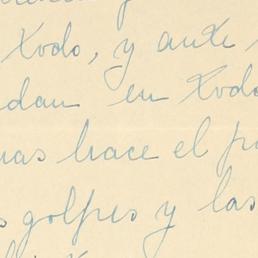 Xodo, y ante
dan en Xodo
uas hace el p
s golpes y las